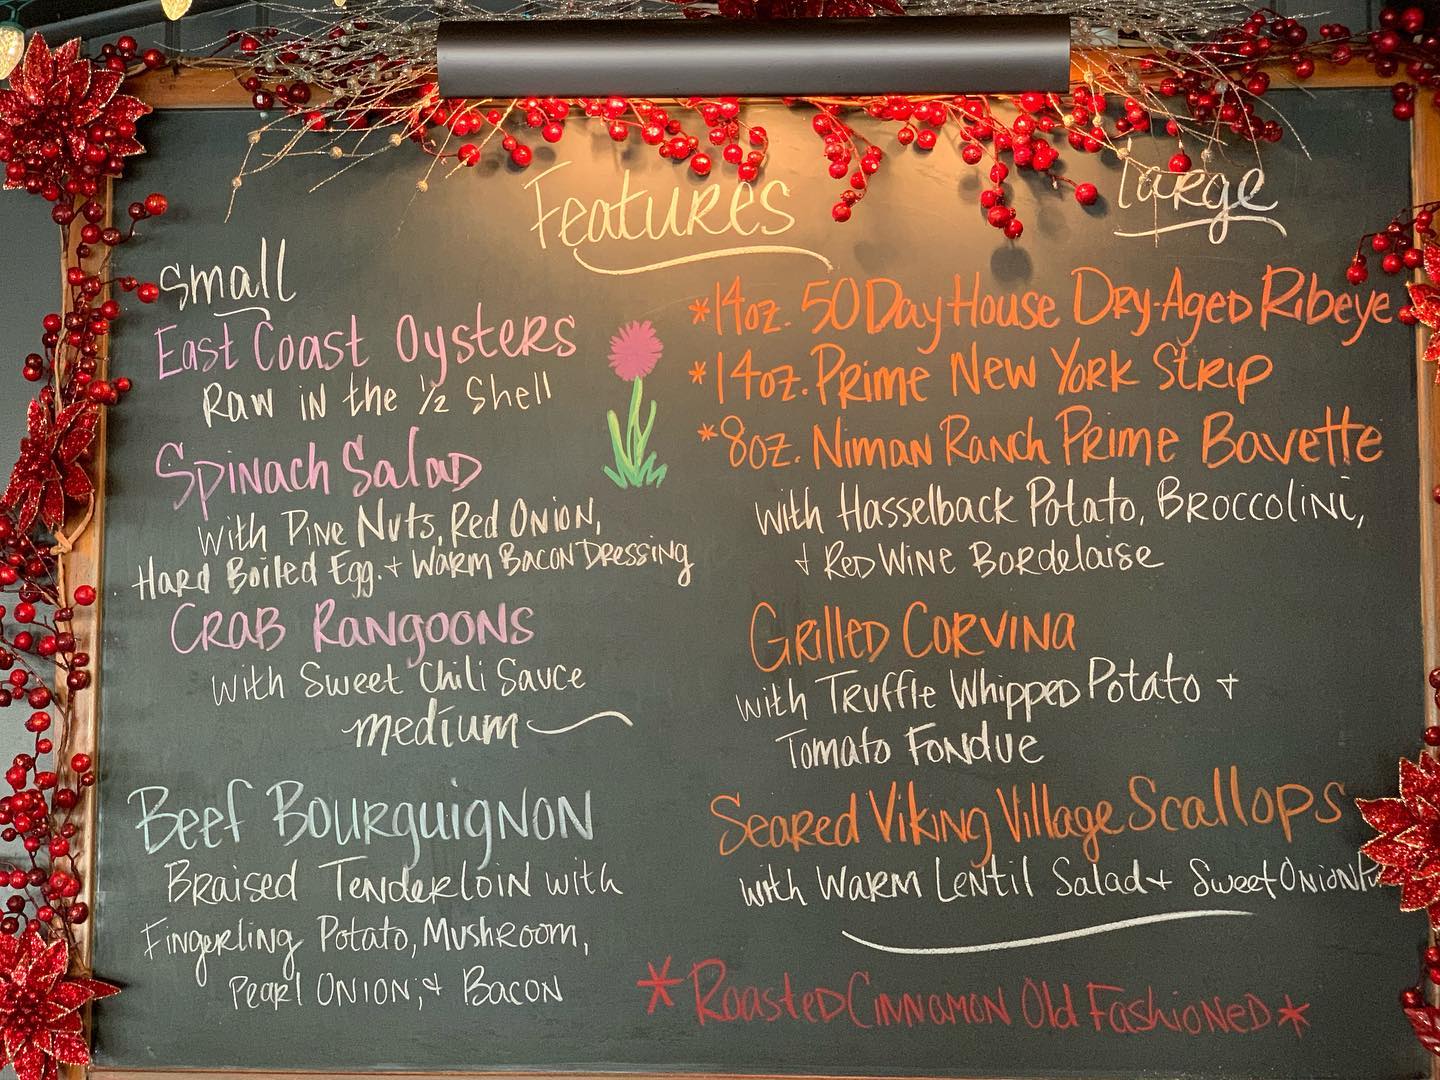 Features
Small
East Coast Oysters
Raw in the ½ Shell
Spinach Salad
with Pine Nuts, Red Onion,
Hard Boiled Egg, + Warm Bacon Dressing
Crab Rangoons
with Sweet Chili Sauce
medium
Beef Bourguignon
Braised Tenderloin with
Fingerling Potato, Mushroom,
Pearl Onion, + Bacon
Large
*14oz. 50 Day House Dry-Aged Ribeye
*14oz. Prime New York Strip
*8oz. Niman Ranch Prime Bavette
with Hasselback Potato, Broccolini,
+ Red Wine Bordelaise
Grilled Corvina
with Truffle Whipped Potato +
Tomato Fondue
Seared Viking Village Scallops
with Warm Lentil Salad + Sweet Onion
*Roasted Cinnamon Old Fashioned*